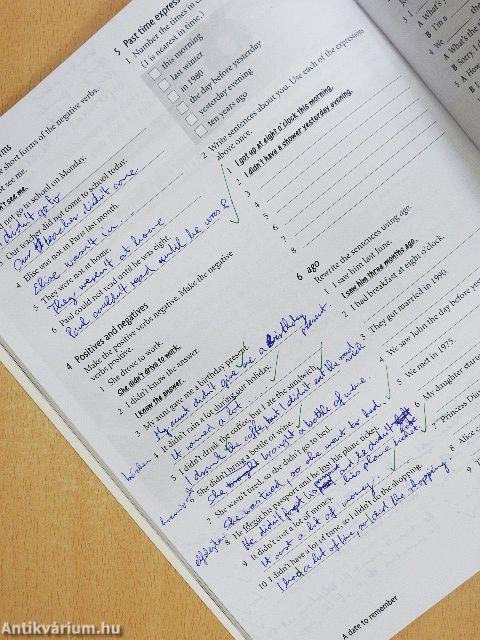 e short forms of the negative verbs.
not go in school on Monday.
I didn't go to
3 Our teacher did not come to school today.
Our teacher didn't come
4 Elise was not in Paris last month.
Elise wasn't in
5 They were not at home.
They weren't at home
6 Paul could not read until he was eight.
Paul couldn't read until he was 8
4 Positives and negatives
Make the positive verbs negative. Make the negative
verbs positive.
1 She drove to work.
She didn't drive to work.
2 I didn't know the answer.
I knew the answer.
3 My aunt gave me a birthday present.
My aunt didn't give me a birthday
present.
4 It didn't rain a lot during our holiday.
It rained a lot
5 I didn't drink the coffee, but I ate the sandwich.
I drank the coffee but I didn't eat the
6 She didn't bring a bottle of wine.
She brought a bottle of wine.
7 She wasn't tired, so she didn't go to bed.
She was tired, so she went to bed.
8 He forgot his passport and he lost his plane ticket.
He didn't forget his passport and he didn't
his plane ticket
9 It didn't cost a lot of money.
It cost a lot of money.
10 I didn't have a lot of time, so I didn't do the shopping.
I had a lot of time, so I did the shopping.
5 Past time express
1 Number the times in
(1 is nearest in time.)
this morning
last winter
in 1980
the day before yesterday
yesterday evening
ten years ago
2 Write sentences about you. Use each of the expressions
above once.
1 I got up at eight o'clock this morning.
2 I didn't have a shower yesterday evening.
3
4
5
6
7
8
6 ago
Rewrite the sentences using ago.
1 I saw him last June.
I saw him three months ago.
2 I had breakfast at eight o'clock.
3 They got married in 1990.
4 We saw John the day before yes
5 We met in 1975.
6 My daughter starte
7 Princess Dian
8 Alice
9
A date to remember
Antikvárium.hu